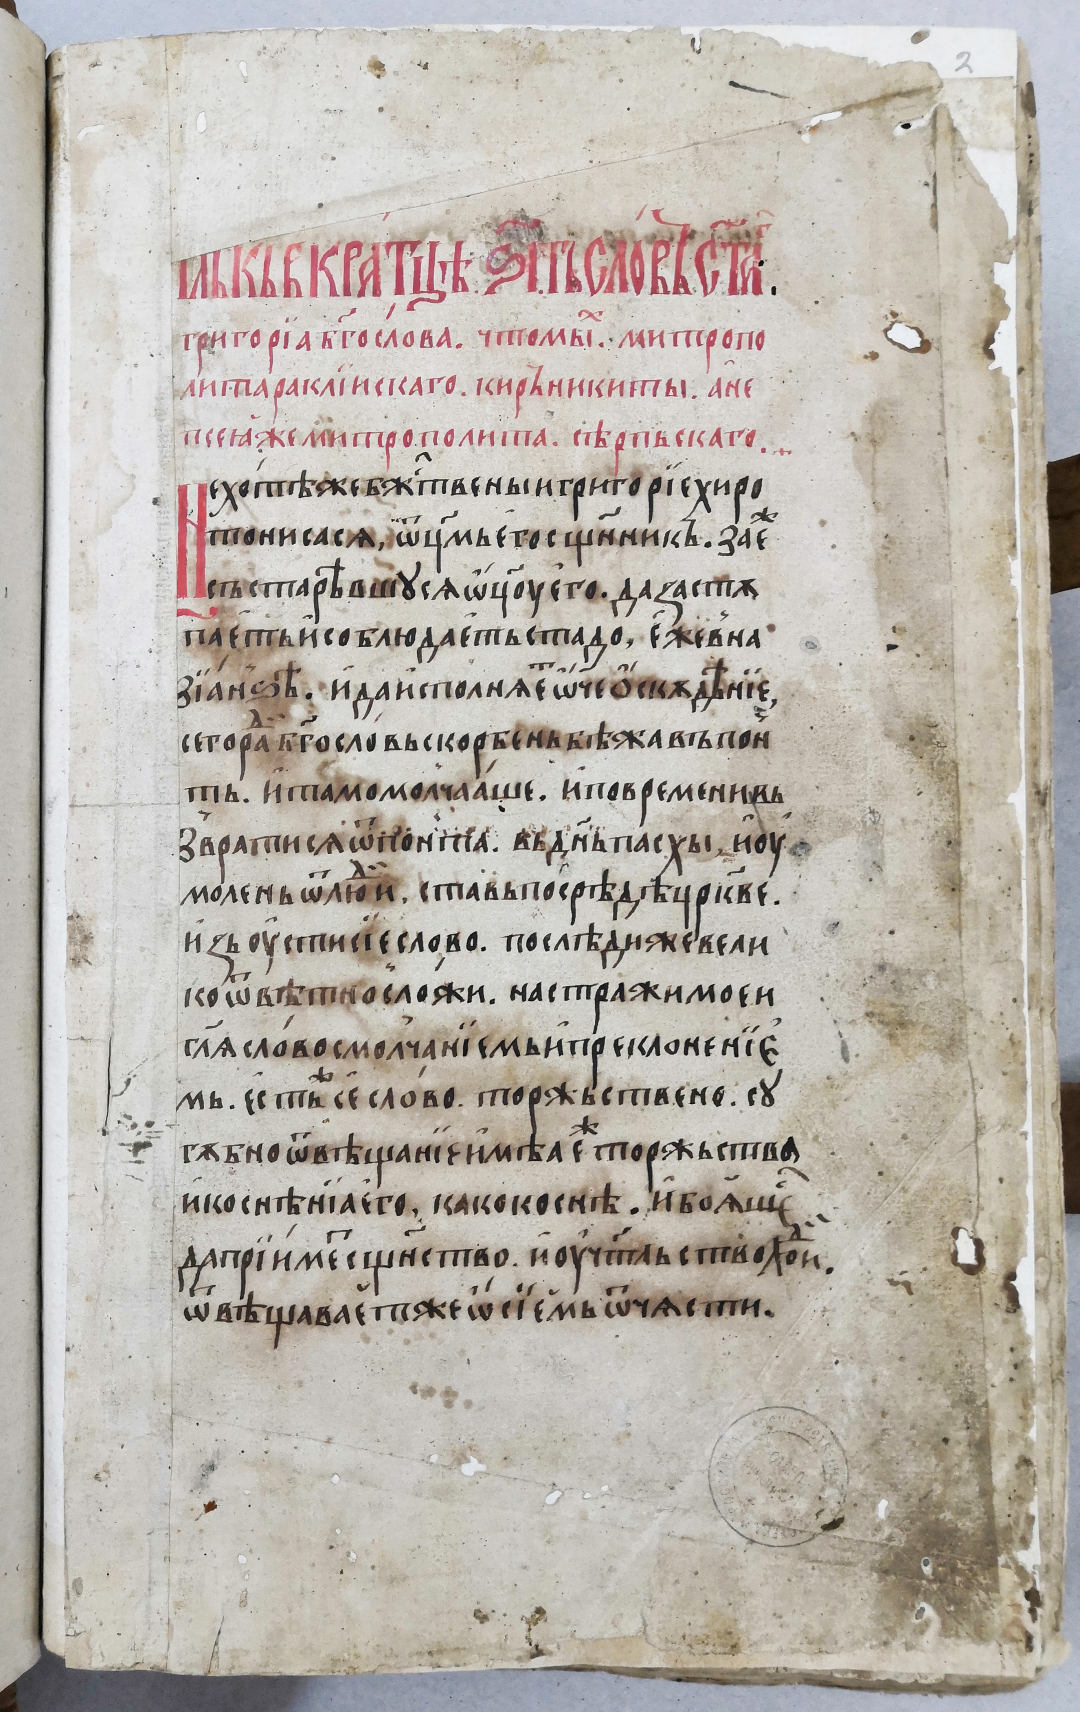 2
тлькъвкра́тцѣ. ѕ҃і тъсло́въст҃а́г.
григо́рїа бг҃осло́ва. чтомы́х. митропо
лита раклі́искаго. кирь никиты. а҆не
псеꙗ҆ же митрополита. сѣрпьскаго.
Не хо́тѣ же бж҃ственыи григо́рїе хиро
тониса сѧ, ѿ ц҃мь е҆го сщ҃нникъ. за е҆ж
съста́рѣвшꙋсѧ ѿц҃оу е҆го. да застѫ
пае҆ть и҆ соблюдае҆ть стадо, е҆же в на
зїа́нѕѣ. и҆ да и҆сполнѧе҆т ѿче ѡ҆скѫдѣ́нїе,
сего ра́д бг҃осло́вь скорбень бѣжа въ по́н
ть. и҆ тамо молча́аше. и҆ по времени вь
звратисѧ ѿ по́нта. вь дн҃ь пасхы, и҆ оу҆
молень ѿ люди, ставь посрѣ́дѣ цр҃кве.
и҆зь оу҆сти сїе слово. послѣди же вели
ко ѿвѣтно сло́жи. на стражи мое́и
гл҃ѧ сло́во с молча́нїемь и҆ преклоненїе҆
мь. е҆стьж се сло́во. торжьствено. сꙋ
гѫбно ѿвѣщанїе и҆мѣа е҆ж торжьства
и҆ коснѣнїа е҆го, како коснѣ. и҆ боѧ́щс
да прїи́мет сщ҃нство. и҆ оу҆чт҃льство люди.
ѿвѣщавае҆т же ѡ҆ сїе҆мь ѿ чѧсти.